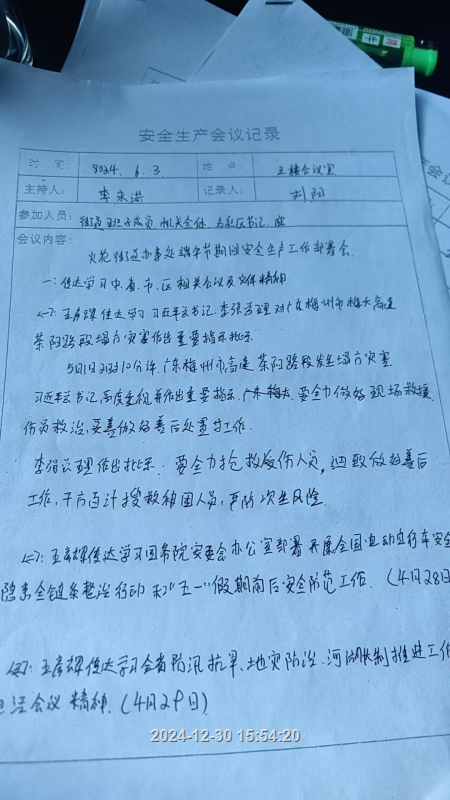 安全生产会议记录
时 间： 2024. 6. 3 地 点： 主楼会议室
主持人： 李永洪 记录人： 刘阳
参加人员： 街道班子成员、机关全体、各社区书记、
会议内容：
火花街道办事处端午节期间安全生产工作部署会.
一：传达学习中、省、市、区相关会议及文件精神
<一>：王彦辉传达学习习近平总书记、李强总理对广东梅州市梅大高速
茶阳路段塌方灾害作出重要指示批示.
5月1日2时10分许，广东梅州市高速茶阳路段发生塌方灾害
习近平总书记高度重视并作出重要指示. 要全力做好现场救援
伤员救治、妥善做好善后处置等工作.
李强总理作出批示：要全力抢救受伤人员, 细致做好善后
工作, 千方百计搜救被困人员, 严防次生风险.
<二>：王彦辉传达学习国务院安委会办公室部署开展全国电动自行车安全
隐患全链条整治行动和“五一”假期前后安全防范工作. (4月28日
<三>：王彦辉传达学习全省防汛抗旱、地灾防治、河湖长制推进工作
电话会议精神. (4月29日)
2024-12-30 15:54:20